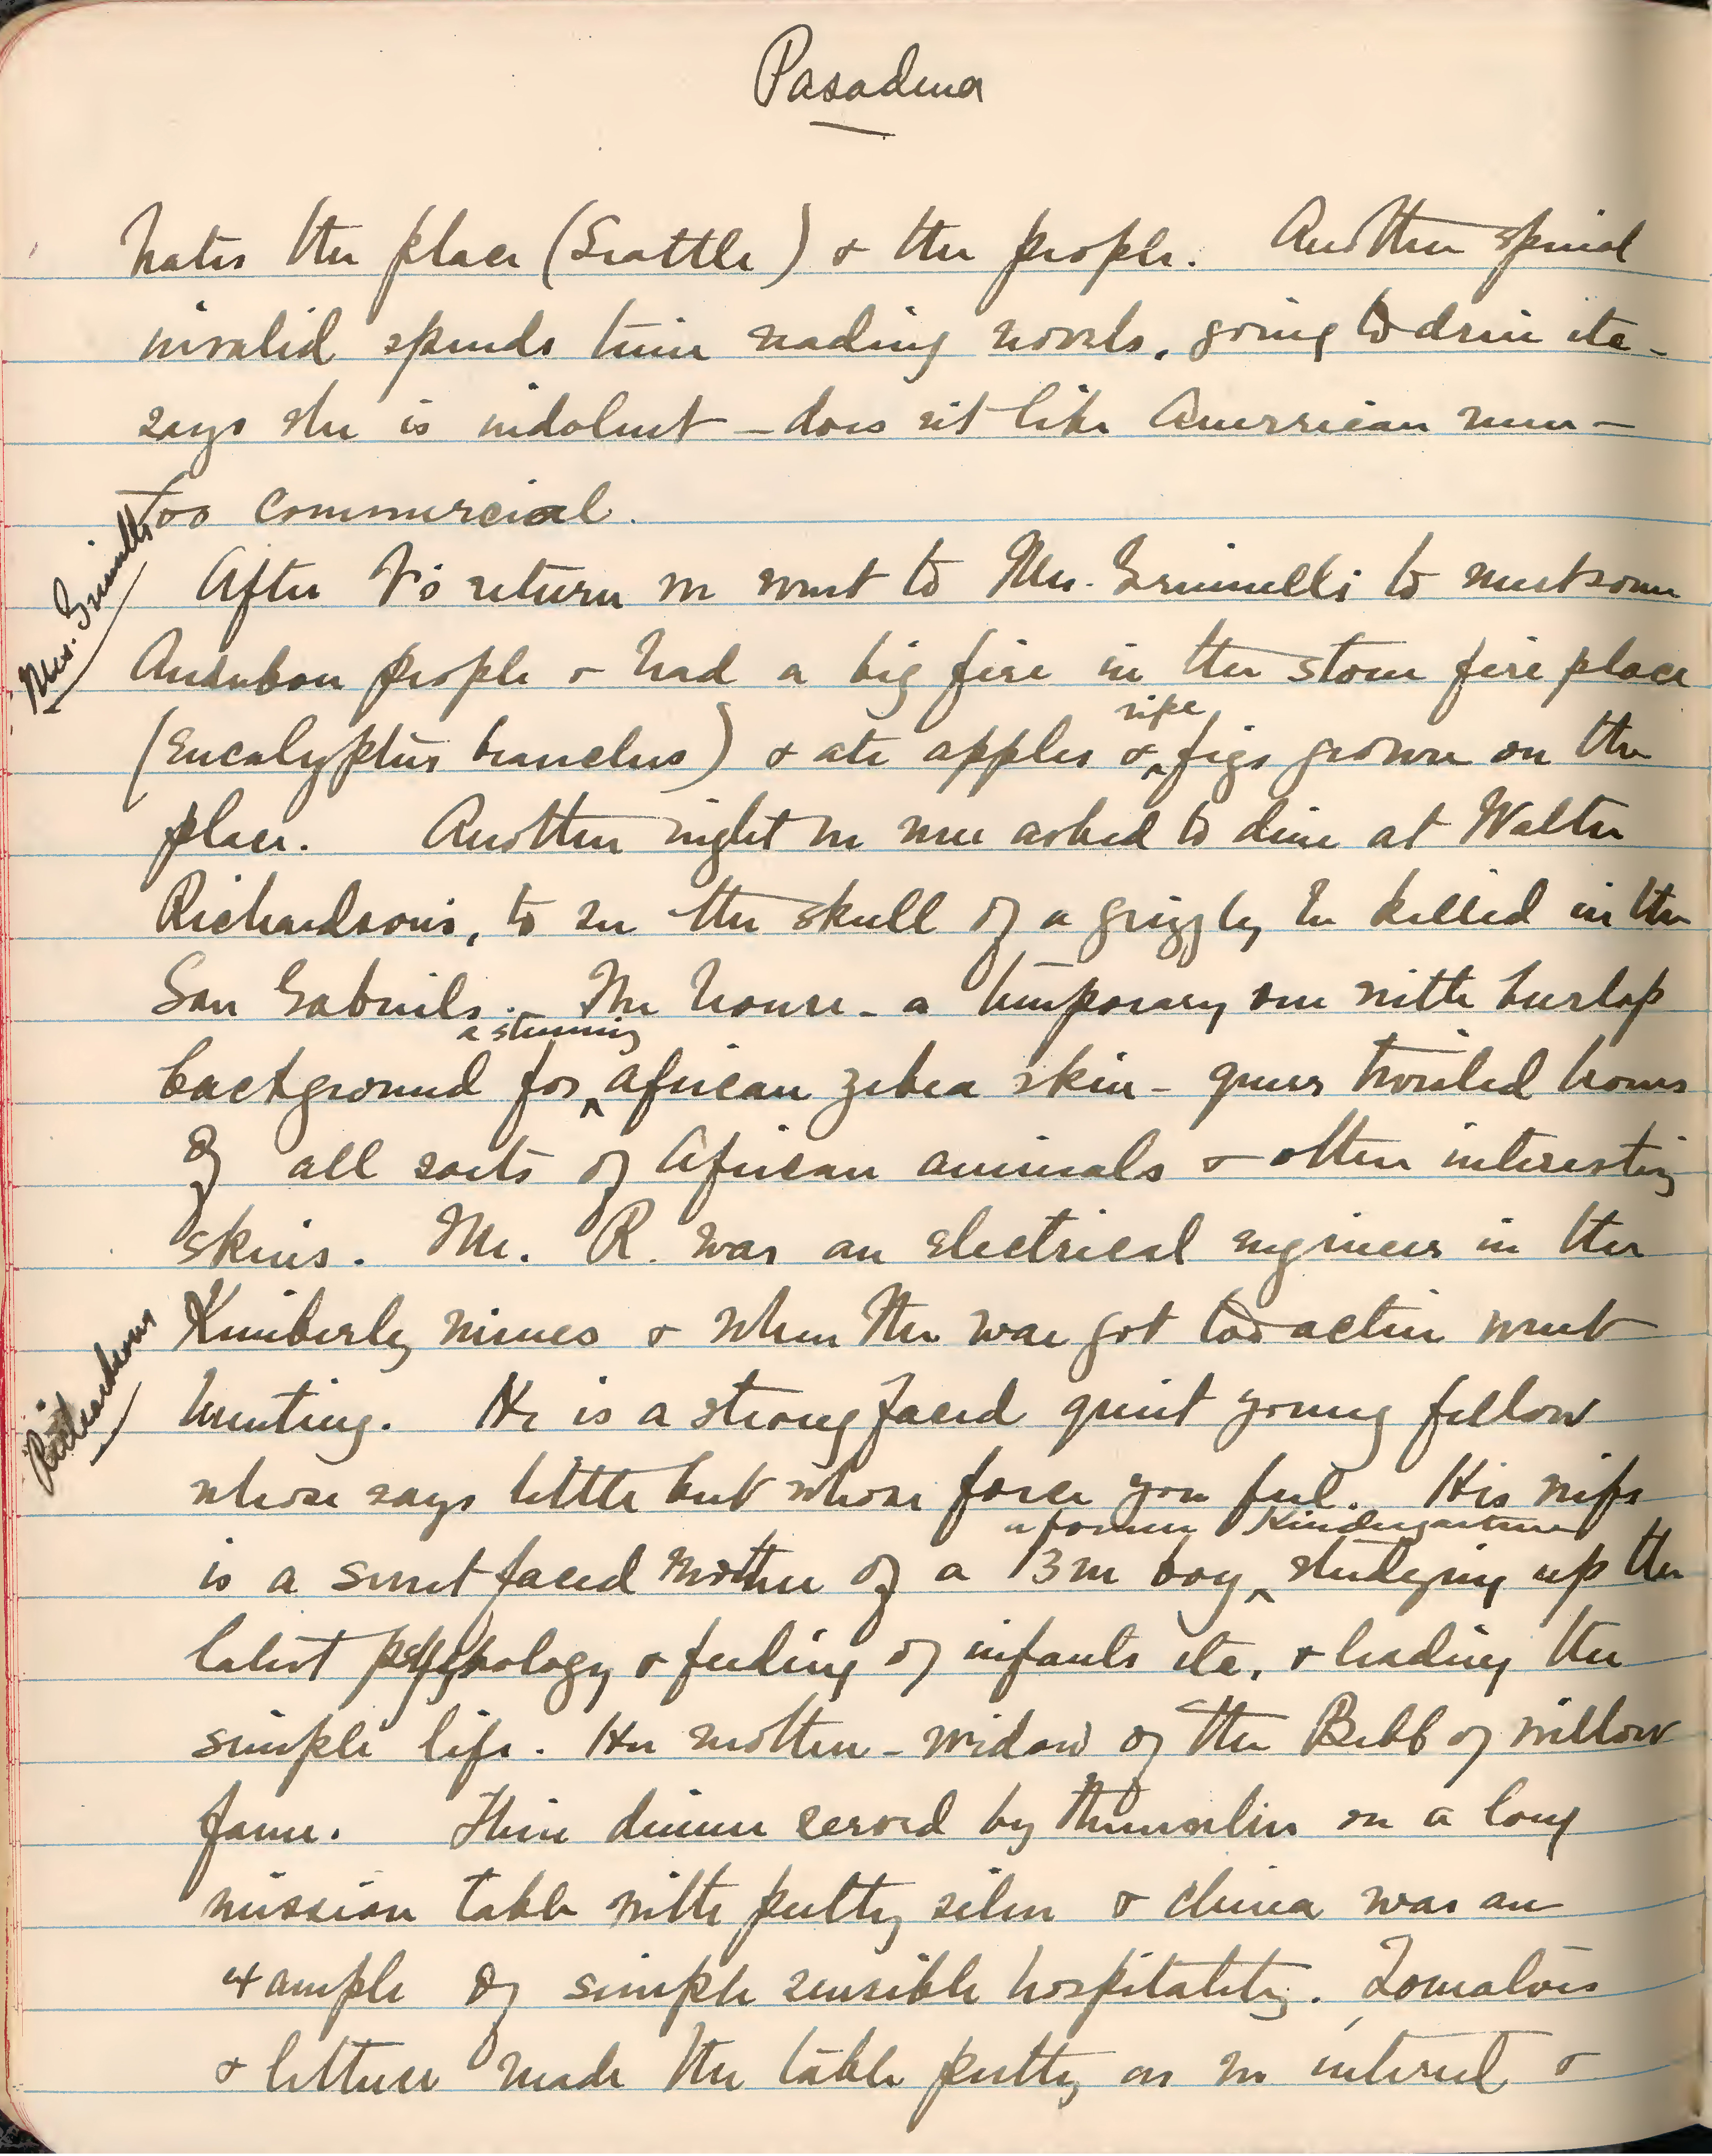 Pasadena
hates the place (Seattle) & the people. Another spinal
invalid spends time reading novels, going to drive etc -
says she is indolent - does n't like American men -
too commercial.
Mrs. Grinnells
After F's return we went to Mrs. Grinnells to meet some
Audubon people & had a big fire in the stone fire place
ripe
(Eucalyptus branches) & ate apples & ^ figs grown on the
place. Another night we were asked to dine at Walter
Richardson's, to see the skull of a grizzly he killed in the
San Gabriels. The house - a temporary one with burlap
a stunning
background for ^ African zebra skin - queer twisted horns
of all sorts of African animals & other interesting
skins. Mr. R. was an electrical engineer in the
Richardsons
Kimberly mines & when the war got too active went
hunting. He is a strong faced quiet young fellow
whose says little but whose force you feel. His wife
a former Kindergartner
is a sweet faced mother of a 13m boy ^ studying up the
latest psychology & feeding of infants etc, & leading the
simple life. Her mother - widow of the Bebb of willow
fame. Their dinner served by themselves on a long
mission table with pretty silver & china was an
example of simple sensible hospitality. Tomatoes
& lettuce made the table pretty as we entered &